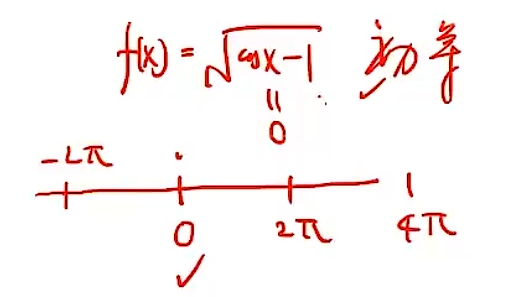 f(x) = √(cosx-1) 初等
||
0
-2π
0 2π 4π